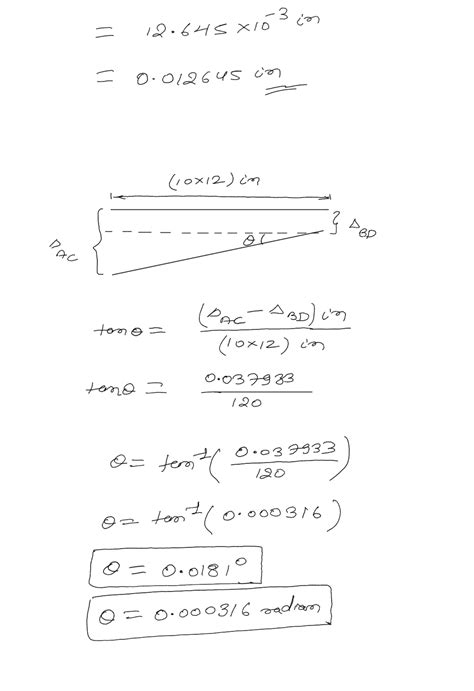 = 12.645 ×10⁻³ in
= 0.012645 in
(10×12) in
Δ_AC
θ
Δ_BD
tanθ = (Δ_AC − Δ_BD) in / (10×12) in
tanθ = 0.037933 / 120
θ = tan⁻¹ ( 0.037933 / 120 )
θ = tan⁻¹ ( 0.000316 )
θ = 0.0181°
θ = 0.000316 radian